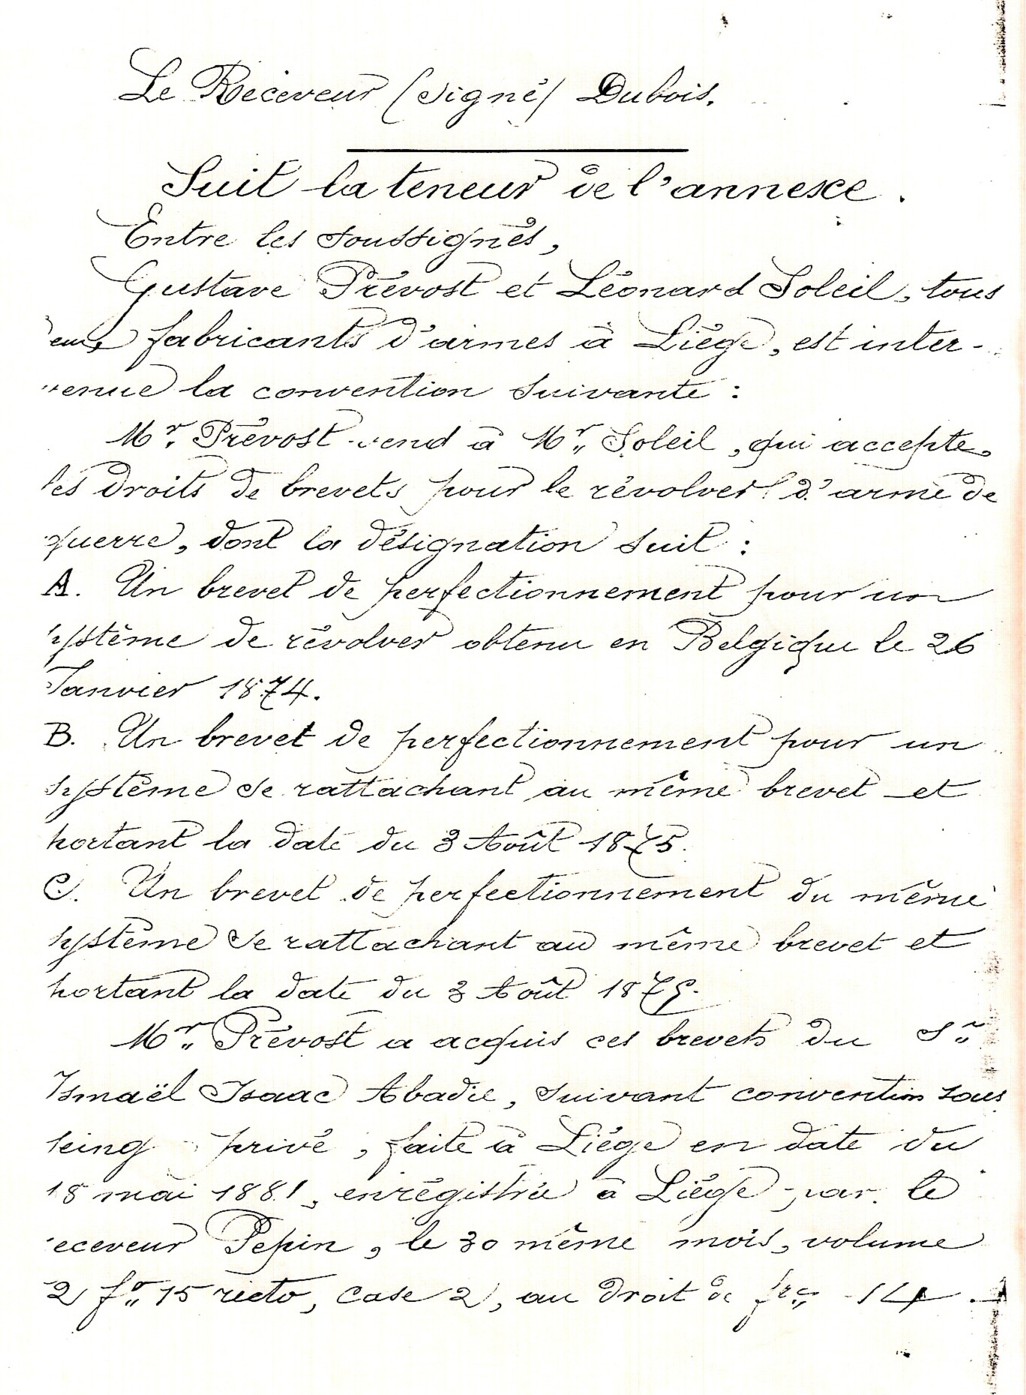 Le Receveur (signé) Dubois.
Suit la teneur de l'annexe.
Entre les soussignés,
Gustave Prévost et Léonard Soleil, tous
deux fabricants d'armes à Liége, est inter-
venue la convention suivante :
Mr. Prévost vend à Mr. Soleil, qui accepte,
les droits de brevets pour le révolver d'arme de
guerre, dont la désignation suit :
A. Un brevet de perfectionnement pour un
système de révolver obtenu en Belgique le 26
Janvier 1874.
B. Un brevet de perfectionnement pour un
système se rattachant au même brevet et
portant la date du 3 Août 1875.
C. Un brevet de perfectionnement du même
système se rattachant au même brevet et
portant la date du 3 Août 187
Mr. Prévost a acquis ces brevets du Sr.
Ismaël Isaac Abadie, suivant convention sous
seing privé, faite à Liége en date du
18 mai 1881, enrégistrée à Liége par le
receveur Pepin, le 30 même mois, volume
2 fo. 15 recto, case 2, au droit de frcs 14.